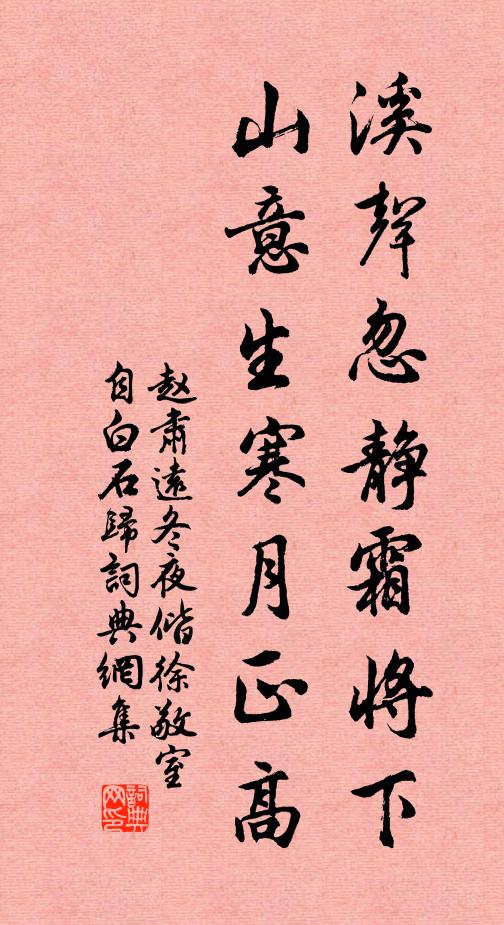 溪聲忽静霜將下
山意生寒月正高
赵肅遠冬夜偕徐敬室
自白石歸詞典網集
詞典
网印